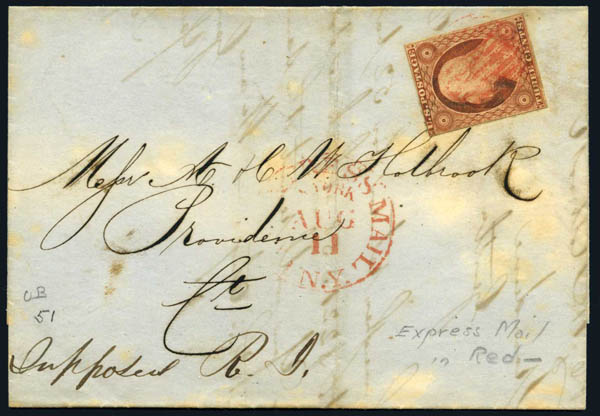 U.S. POSTAGE
THREE CENTS
Messr A & C W Holbrook
YORK
S. MAIL
AUG
11
N.Y.
Providence
Ct
OB
51
Express Mail
in Red —
Supposed R. I.